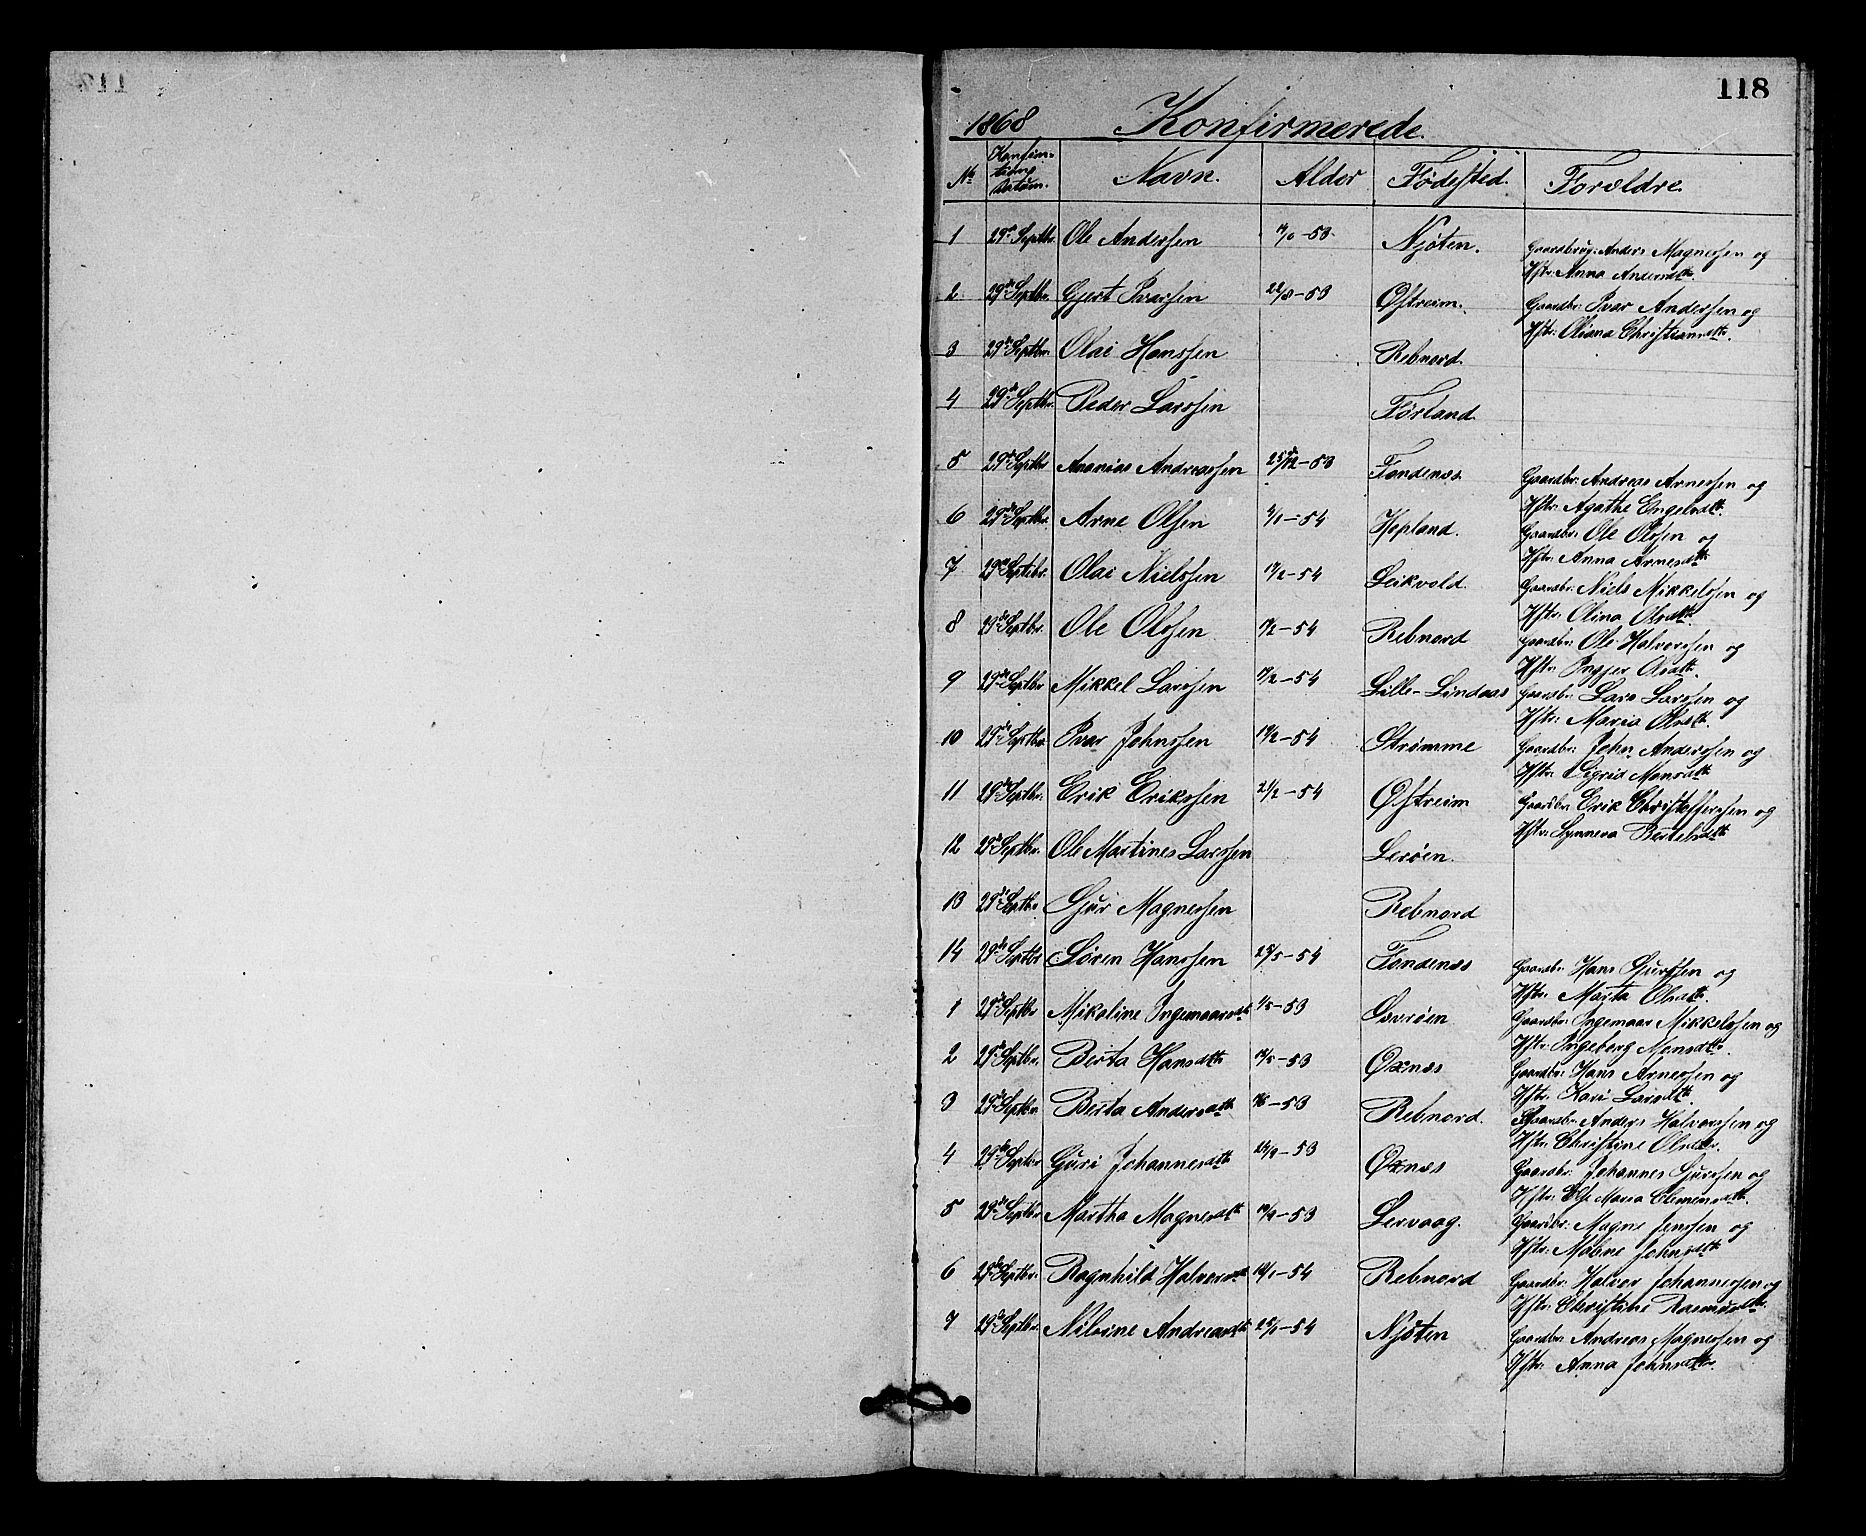 118
1868 Konfirmerede.
No Konfirmations Datum. Navn. Alder Fødested. Forældre.
1 29de Septbr. Ole Anderssen -53. Njøten. Gaardbrug: Anders Magnessen og
Hstr: Anna Andersdtr.
2 29de Septbr. Gjert Ivarssen 22/8-53 Østreim. Gaardbr: Ivar Anderssen og
Hstr: Oliana Christiansdtr.
3 29de Septbr. Olai Hanssen Rebnord.
4 29de Septbr. Peder Larssen Førland.
5 29de Septbr Ananias Andreassen 25/12-53 Fondenæs. Gaardbr: Andreas Arnessen og
Hstr: Agathe Engelsdtr.
6 29de Septbr. Arne Olsen /1-54 Hopland. Gaardbr: Ole Olssen og
Hstr: Anna Arnesdtr
7 29de Septbr. Olai Nielssen 17/2-54 Leikvold. Gaardbr: Niels Mikkelssen og
Hstr: Olina Olsdtr.
8 29de Septbr. Ole Olssen /2-54 Rebnord Gaardbr: Ole Halvorssen og
Hstr: Ingjer Olsdtr.
9 29de Septbr Mikkel Larssen /2-54 Lille-Lindaas Gaardbr: Lars Larssen og
Hstr: Maria Olsdtr.
10 29de Septbr. Ivar Johnssen 19/2-54 Strømme Gaardbr: John Anderssen og
Hstr: Sigrid Monsdtr.
11 29de Septbr. Erik Erikssen 21/2-54 Østreim Gaardbr: Erik Christofferssen og
Hstr: Synneva Bertelsdtr
12 29de Septbr. Ole Martines Larssen Lerøen.
13 29de Septbr. Gjur Magnessen Rebnord
14 29de Septbr Søren Hanssen /5-54 Fondenæs Gaardbr: Hans Gjurssen og
Hstr: Marta Olsdtr.
1 29de Septbr Mikaline Ingemaarsdtr /5-53 Lavrøen Gaardbr: Ingemaar Mikkelssen og
Hstr: Ingeborg Monsdtr.
2 29de Septbr. Berta Hansdtr 13/5-53 Oxnæs Gaardbr: Hans Arnessen og
Hstr: Kari Larsdtr.
3 29de Septbr. Berta Andersdtr -53 Rebnord. Gaardbr: Anders Halvorssen og
Hstr: Christine Olsdtr.
4 29de Septbr Guri Johannesdtr /9-53 Oxnæs Gaardbr: Johannes Gjurssen og
Hstr: Else Maria Clemensdtr.
5 29de Septbr Martha Magnesdtr /9-53 Lervaag. Gaardbr: Magne Jenssen og
Hstr: Malene Johnsdtr.
6 29de Septbr. Ragnhild Halvorsdtr /1-54 Rebnord Gaardbr: Halvor Johannessen og
Hstr: Christine Rasmusdtr.
7 29de Septbr. Nilsine Andreasdtr /1-54 Njøten Gaardbr: Andreas Magnessen og
Hstr: Anna Johnsdtr.